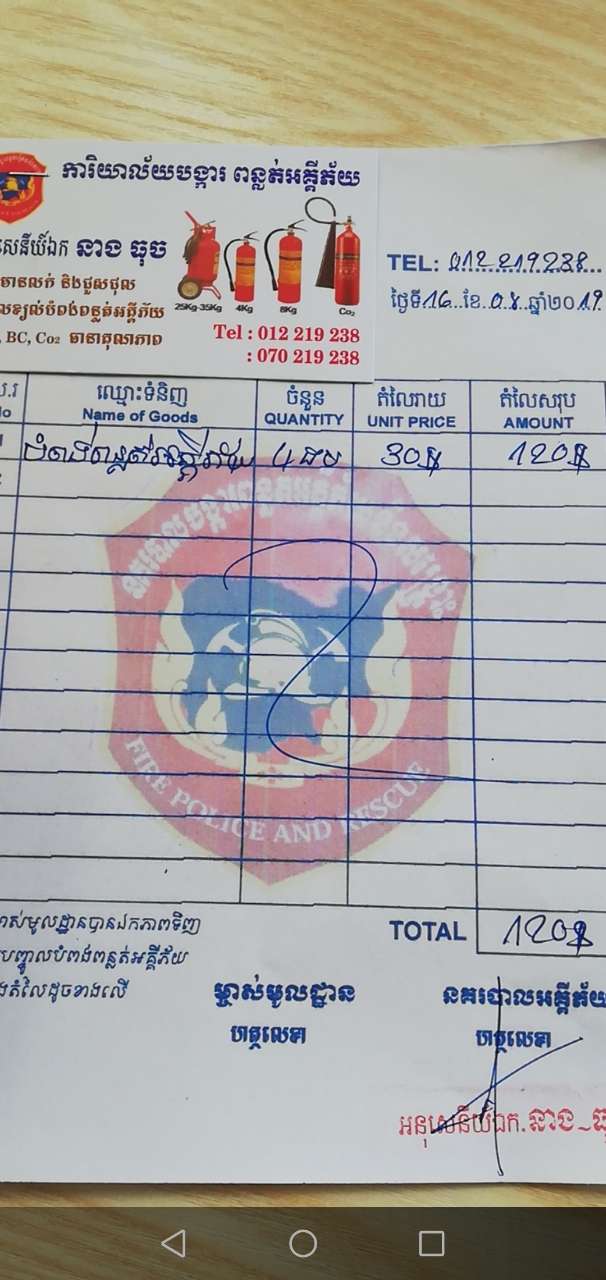 ការិយាល័យបង្ការ ពន្លត់អគ្គីភ័យ
សេនីយ៍ឯក នាង ធុច
មានលក់ និងជួសជុល
លខ្យល់បំពង់ពន្លត់អគ្គីភ័យ
, BC, Co2 ធានាគុណភាព
25Kg-35Kg 4Kg 8Kg Co2
Tel : 012 219 238
: 070 219 238
TEL: 012 219238
ថ្ងៃទី.16...ខែ.08..ឆ្នាំ២០19
ល.រ ឈ្មោះទំនិញ ចំនួន តំលៃរាយ តំលៃសរុប
No Name of Goods QUANTITY UNIT PRICE AMOUNT
បំពង់ពន្លត់អគ្គីភ័យ 4 30$ 120$
FIRE POLICE AND RESCUE
ម្ចាស់មូលដ្ឋានបានឯកភាពទិញ
បញ្ចូលបំពង់ពន្លត់អគ្គីភ័យ
តំលៃដូចខាងលើ
TOTAL 120$
ម្ចាស់មូលដ្ឋាន នគរបាលអគ្គីភ័យ
ហត្ថលេខា ហត្ថលេខា
អនុសេនីយ៍ឯក.នាង~ធុ